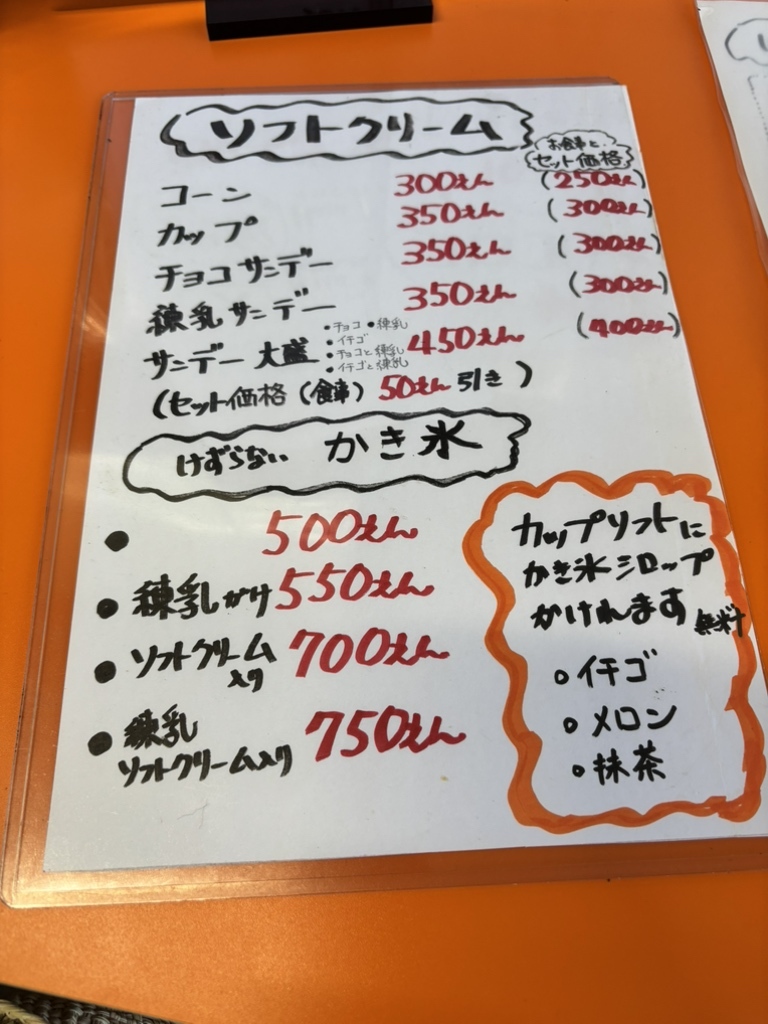 ソフトクリーム
お食事と
セット価格
コーン 300えん (250えん)
カップ 350えん (300えん)
チョコサンデー 350えん (300えん)
練乳サンデー 350えん (300えん)
サンデー大盛 450えん (400えん)
•チョコ •練乳
•イチゴ
•チョコと練乳
•イチゴと練乳
(セット価格(食事) 50えん引き)
けずらない かき氷
• 500えん
• 練乳がけ 550えん
• ソフトクリーム入り 700えん
• 練乳
ソフトクリーム入り 750えん
カップソフトに
かき氷シロップ
かけれます 無料
○イチゴ
○メロン
○抹茶